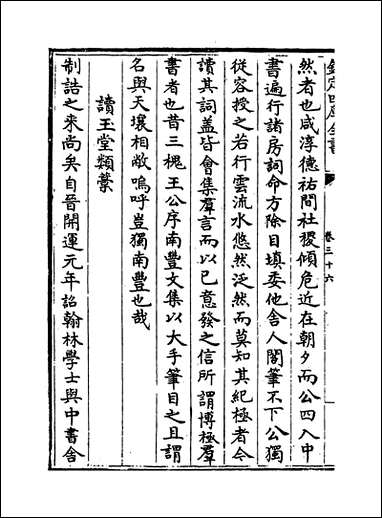 欽定四庫全書
卷三十六
然者也咸淳德祐間社稷傾危近在朝夕而公四入中
書遍行諸房詞命方除目填委他舍人閣筆不下公獨
從容授之若行雲流水悠然泛然而莫知其紀極者今
讀其詞盖皆會集羣言而以已意發之信所謂博極羣
書者也昔三槐王公序南豐文集以大手筆目之且謂
名與天壤相敝嗚呼豈獨南豐也哉
讀玉堂類藁
制誥之来尚矣自晉開運元年詔翰林學士與中書舍